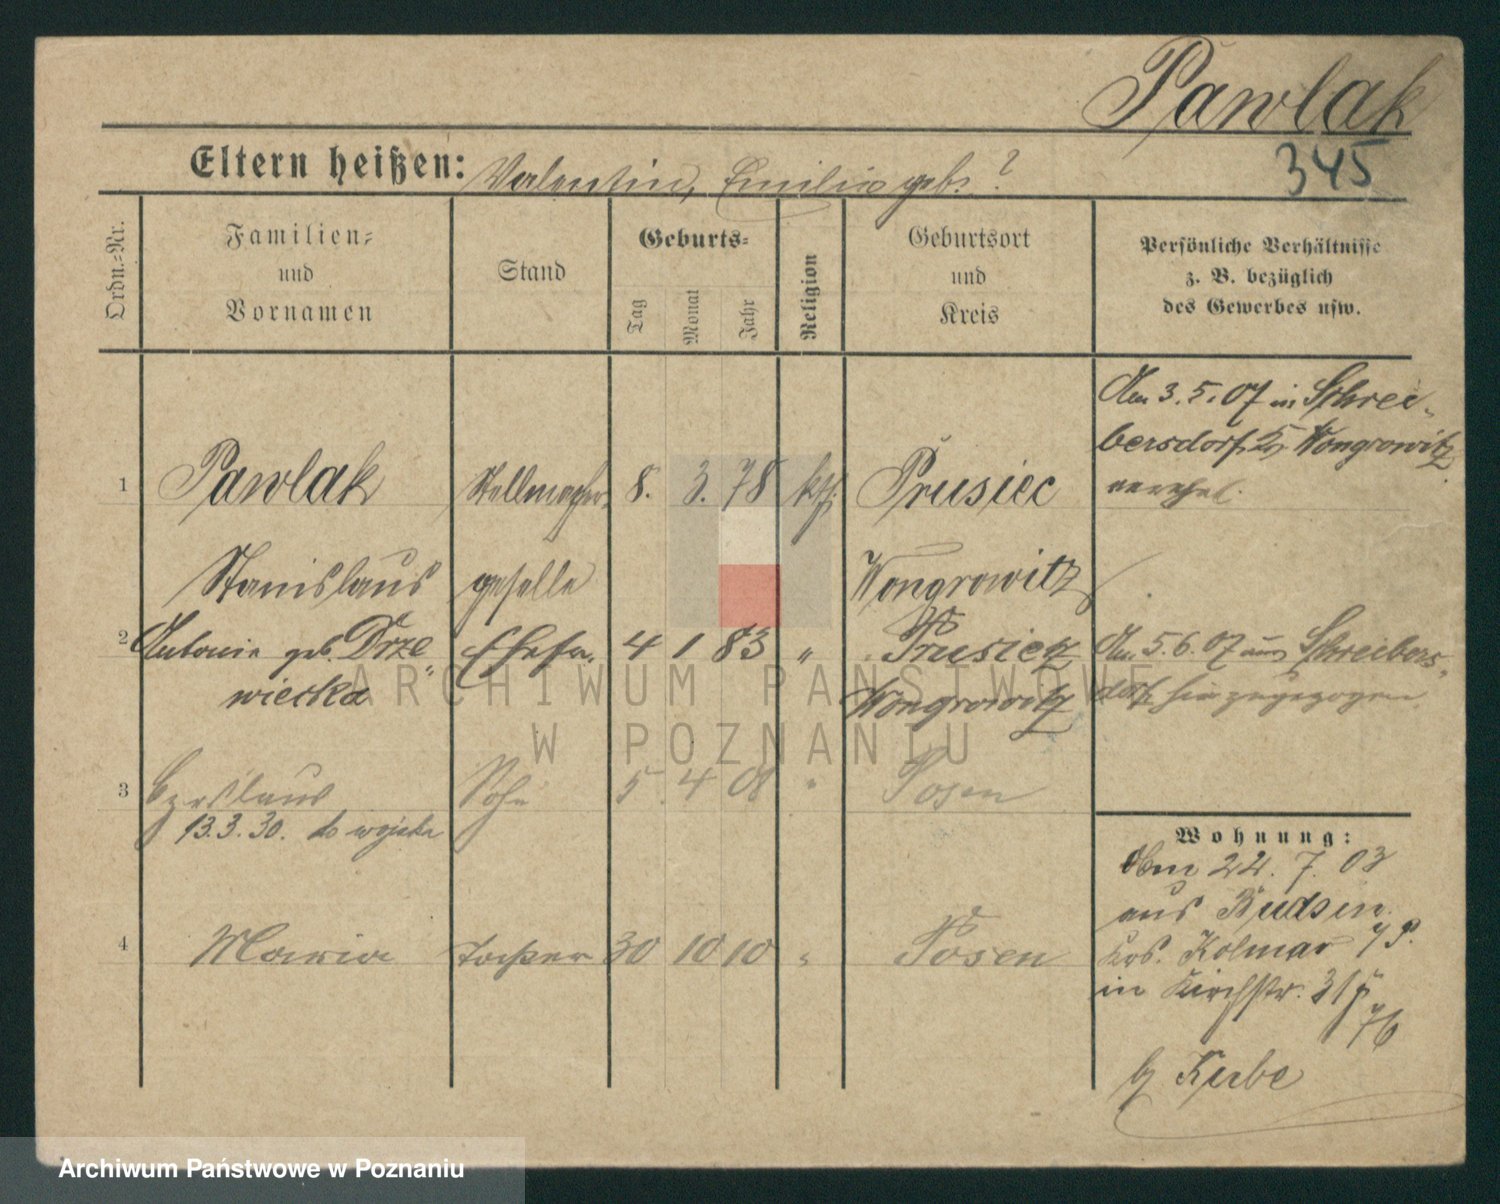 Pawlak
345
Eltern heißen: Valentin, Emilie geb. ?
Ordn.=Nr.
Familien=
und
Vornamen
Stand
Geburts=
Tag
Monat
Jahr
Religion
Geburtsort
und
Kreis
Persönliche Verhältnisse
z. B. bezüglich
des Gewerbes usw.
Am 3.5.07 in Schrei-
bersdorf Wongrowitz
verehel.
1 Pawlak Stellmacher- 8. 3. 78 kth. Prusiec
Stanislaus geselle Wongrowitz
2 Antonie geb. Drze- Ehefr. 4 1 83 " Prusiec Am 5.6.07 aus Schreibers-
wiecka Wongrowitz dorf hinzugezogen
3 Czeslaus Sohn 5. 4 08 " Posen
13.3.30. do wojska
Wohnung:
Am 22. 7. 03
aus Budsin
4 Maria tochter 30 10 10 " Posen
Krs. Kolmar i/P.
in Kirchstr. 31
b/ Kube
ARCHIWUM PAŃSTWOWE
W POZNANIU
Archiwum Państwowe w Poznaniu